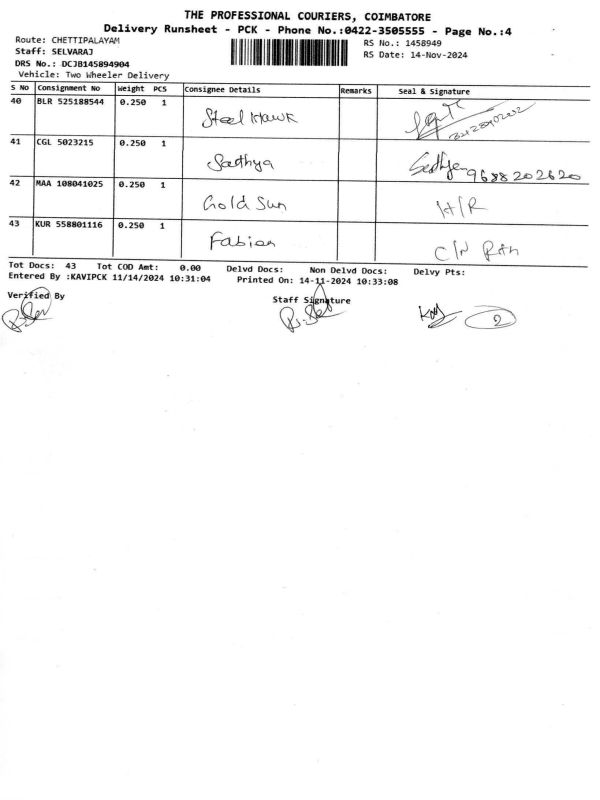 THE PROFESSIONAL COURIERS, COIMBATORE
Delivery Runsheet - PCK - Phone No.:0422-3505555 - Page No.:4
Route: CHETTIPALAYAM
Staff: SELVARAJ
DRS No.: DCJB145894904
Vehicle: Two Wheeler Delivery
RS No.: 1458949
RS Date: 14-Nov-2024
S No Consignment No Weight PCS Consignee Details Remarks Seal & Signature
40 BLR 525188544 0.250 1 Steel Hawk
41 CGL 5023215 0.250 1 Sadhya 9688202620
42 MAA 108041025 0.250 1 Gold Sun H/R
43 KUR 558801116 0.250 1 Fabian C/N
Tot Docs: 43 Tot COD Amt: 0.00 Delvd Docs: Non Delvd Docs: Delvy Pts:
Entered By :KAVIPCK 11/14/2024 10:31:04 Printed On: 14-11-2024 10:33:08
Verified By
Staff Signature
2